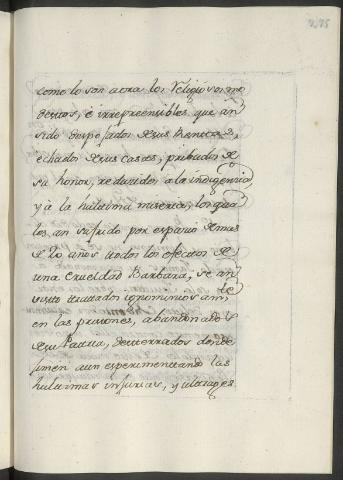 275
como lo son aora los Religiosos mo
destos, è irreprensibles que an
sido despojados de sus Rentas,
echados de sus casas, pribados de
su honor, reduzidos a la indigencia,
y à la hultima miseria, los qua
les an sufrido por espacio de mas
de 10 años todos los efectos de
una Crueldad Barbara, se an
visto tratados ignominiosam,te
en las prisiones, abandonados
de su Patria, desterrados donde
jimen aun esperimentando las
hultimas injurias, y ultrages